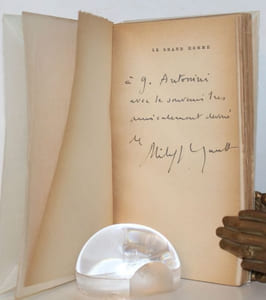 LE GRAND HOMME
à G. Antonini
avec le souvenir très
amicalement dévoué
de
Philippe Soupault